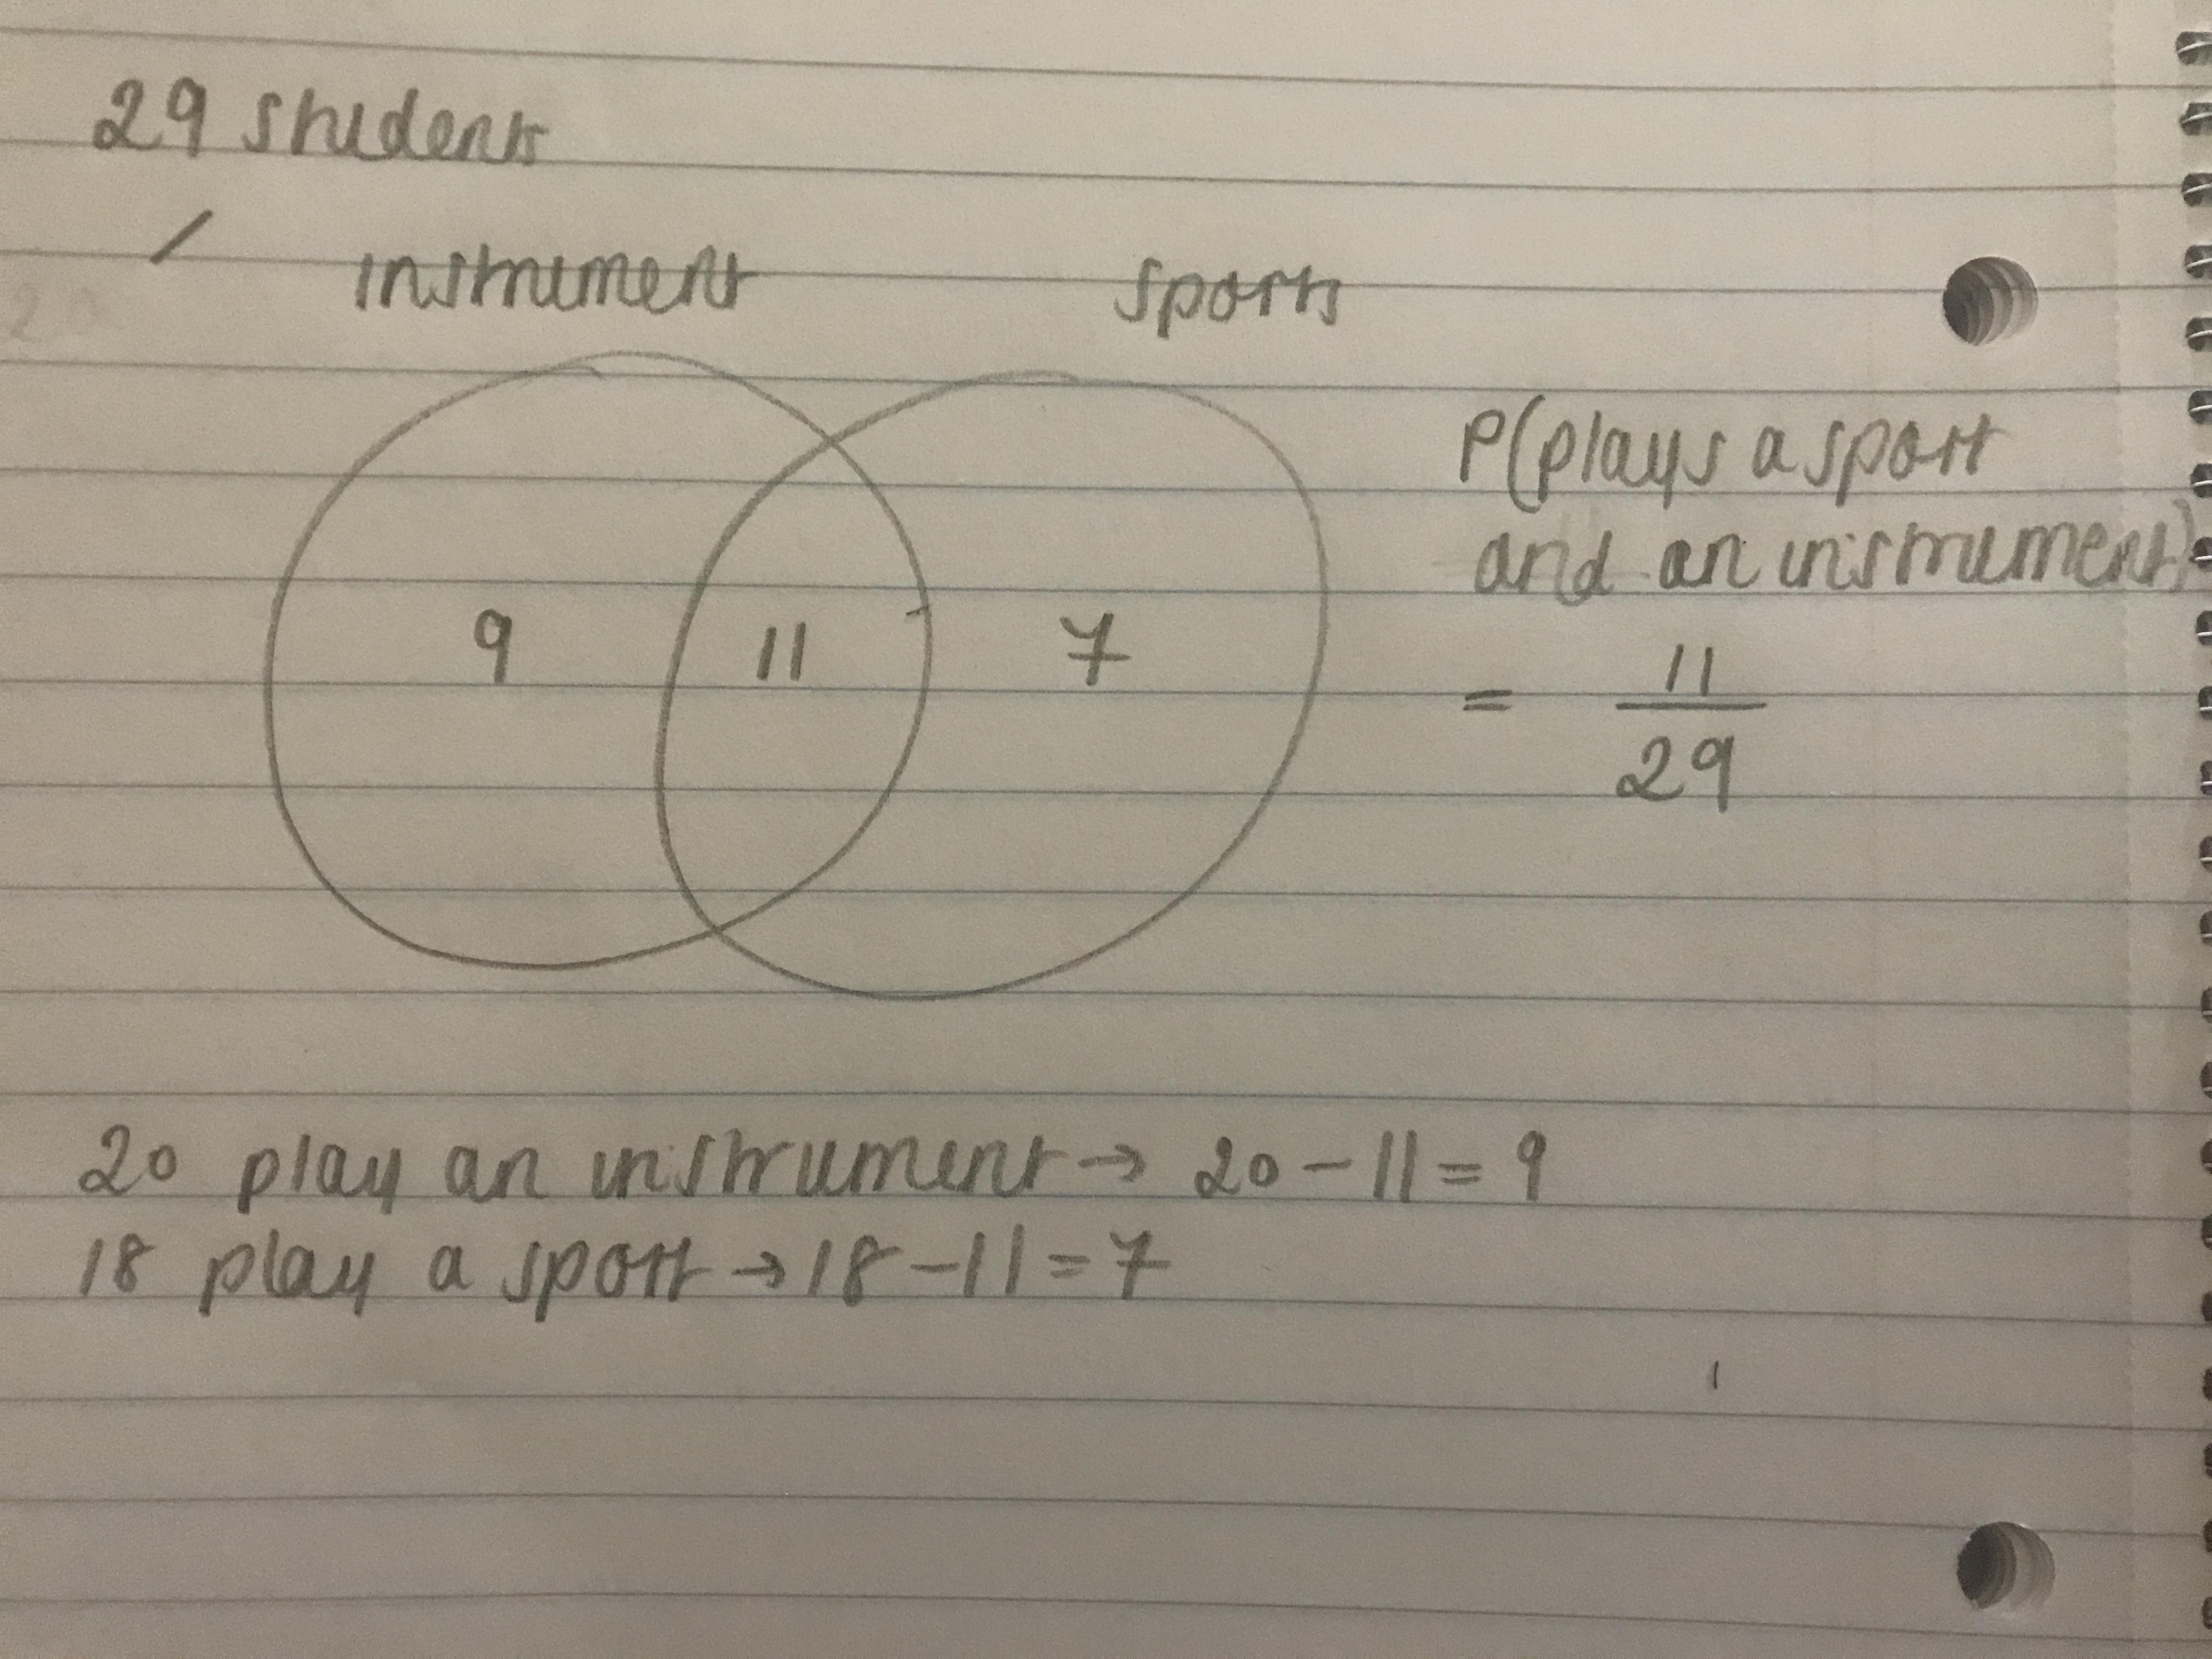 29 students
instrument sports
P(plays a sport
and an instrument)
9 11 7
= 11
29
20 play an instrument → 20 – 11 = 9
18 play a sport → 18 – 11 = 7